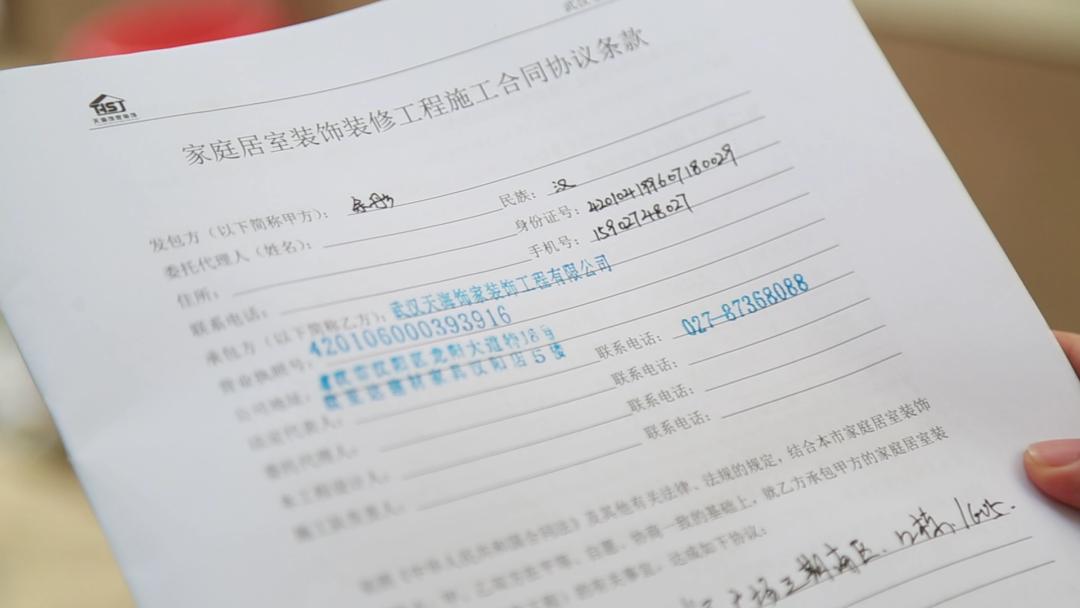 武汉
HSJ
家庭居室装饰装修工程施工合同协议条款
发包方（以下简称甲方）： 民族：汉
委托代理人（姓名）： 身份证号：420104199607180029
住所： 手机号：15902748027
联系电话：
承包方（以下简称乙方）：武汉天海饰家装饰工程有限公司
营业执照号：420106000393916
公司地址：武汉市汉阳区龙阳大道特16号 联系电话：027-87368088
武汉阳店5楼
法定代表人： 联系电话：
委托代理人： 联系电话：
本工程设计人： 联系电话：
施工队负责人：
依照《中华人民共和国合同法》及其他有关法律、法规的规定，结合本市家庭居室装饰
甲、乙双方在平等、自愿、协商一致的基础上，就乙方承包甲方的家庭居室装
的有关事宜，达成如下协议：
广场三期南区、12栋、1605.